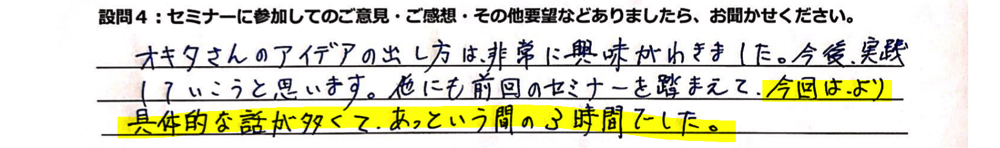 設問4：セミナーに参加してのご意見・ご感想・その他要望などありましたら、お聞かせください。
オキタさんのアイデアの出し方は、非常に興味がわきました。今後、実践
していこうと思います。他にも前回のセミナーを踏まえて、今回は、より
具体的な話が多くて、あっという間の3時間でした。